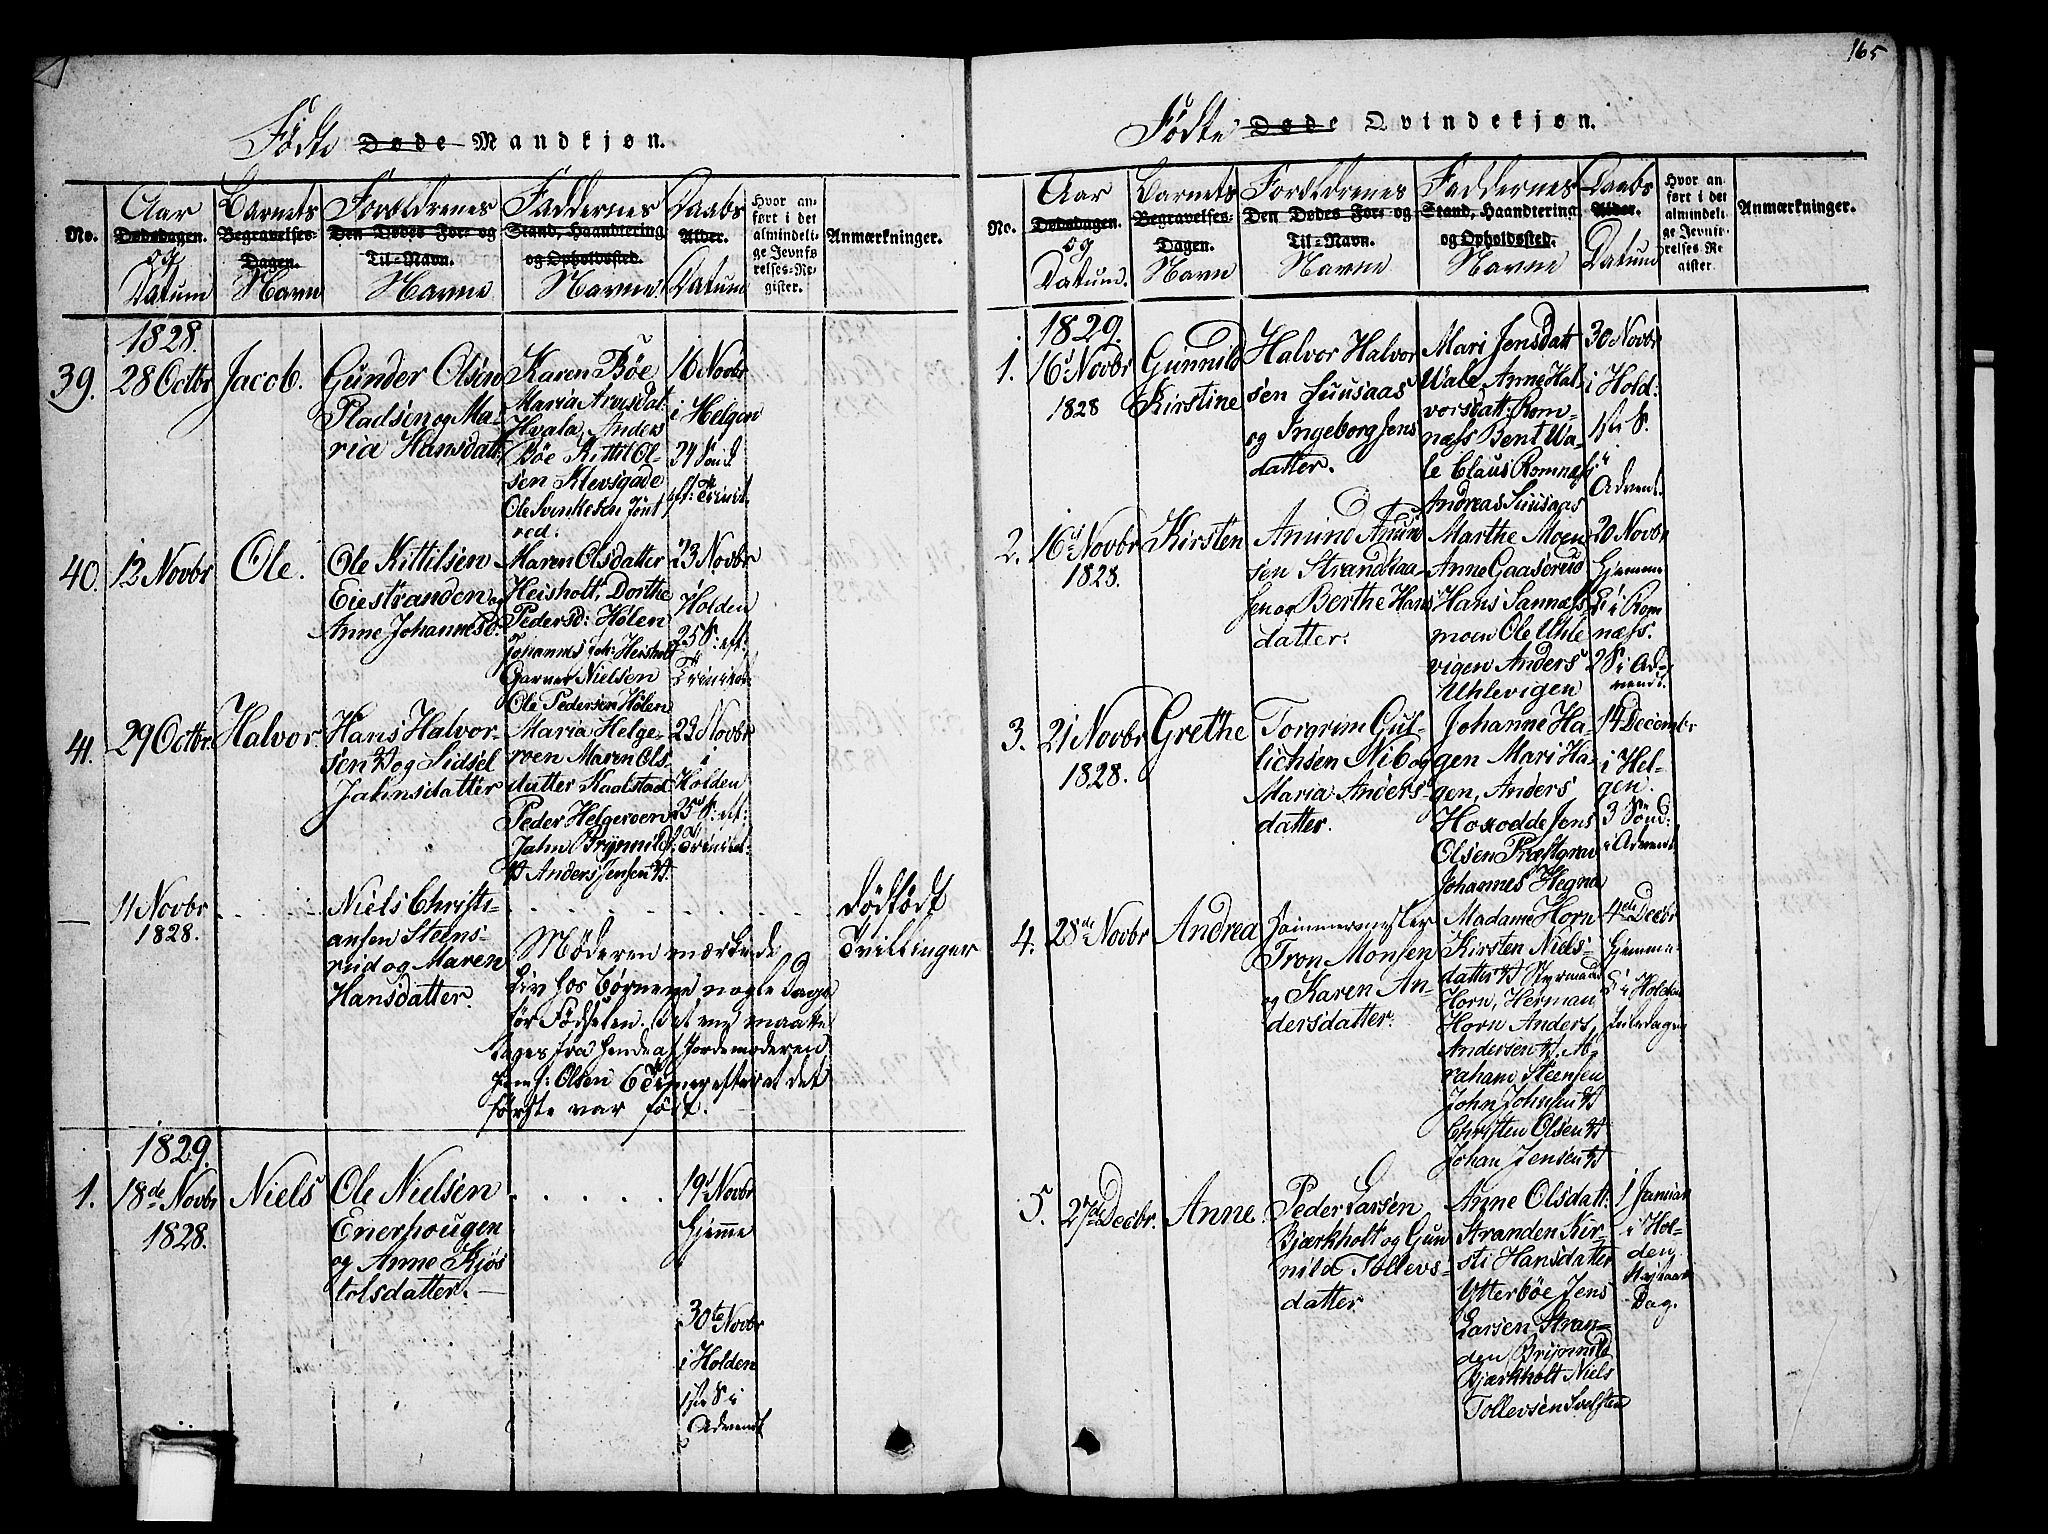 165
Fødte Døde Mandkjøn.
No.
Aar
Dødsdagen.
og
Datum
Barnets
Begravelses-
Dagen.
Navn
Forældrenes
Den Dødes For- og
Til-Navn.
Navne
Faddernes
Stand, Haandtering
og Opholdssted.
Navne.
Daabs
Alder.
Datum
Hvor an-
ført i det
almindeli-
ge Jevnfø
relses-Re
gister.
Anmærkninger.
1828.
39.
28 Octbr
Jacob.
Gunder Olsen
Pladsen og Ma-
ria Hansdatt.
Karen Bøe
Maria Arvesdat.
Hvala, Anders
Bøe Kittil Ol-
sen Klevsgade
Ole Svinkesen Jont
red:
16 Novbr
i Helgen
24 Sønd
eft: Trinit.
40.
12 Novbr
Ole.
Ole Kittilsen
Eiestranden og
Anne Johannesd:
Maren Olsdatter
Heisholt, Dorthe
Pedersd: Holen
Johannes Joh: Heisholt
Garner Nielsen
Ole Pedersen Holen
23 Novbr
i
Holden
25 S: eft:
Trinitat:
41.
29 Octbr.
Halvor.
Hans Halvor-
sen og Sidsel
Jahnsdatter
Maria Helge-
roen Maren Ols-
datter Kaalstad
Peder Helgeroen
Jahn Brynnild-
Anders Jensen
23 Novbr
i
Holden
25 S: ef-
Trinitat:
11 Novbr
1828.
Niels Christi-
ansen Steens-
rud og Maren
Hansdatter.
Dødfødt
Tvillinger
Moderen mærkede
Liv hos Børnene nogle Dage
før Fødselen. Det ene maatte
tages fra hende af Jordemoderen
Olsen 6 Timer efter at det
første var født.
1829.
1.
18de Novbr
1828.
Niels
Ole Nielsen
Enerhougen
og Anne Kjøs
tolsdatter.
19 Novbr
Hjemme
30te Novbr
i Holden
1ste S i
Advendt
Fødte Døde Qvindekjøn.
No.
Aar
Dødsdagen.
og
Datum.
Barnets
Begravelses-
Dagen.
Navn
Forældrenes
Den Dødes For- og
Til-Navn.
Navne
Faddernes
Stand, Haandtering
og Opholdssted.
Navne
Daabs
Alder.
Datum
Hvor an-
ført i det
almindeli-
ge Jevnfø-
relses-Re
gister.
Anmærkninger.
1829.
1.
16 Novbr
1828
Gunnild
Kirstine
Halvor Halvor
sen Suusaas
og Ingeborg Jens
datter.
Mari Jensdatt
Wale, Anne Hal
vorsdatt: Rom-
næss Bent Wa-
le Claus Romnæss
Andreas Suusaas
30 Novbr
i Hold:
1ste S.
i
Advent.
2.
16 Novbr
1828.
Kirsten
Amund Amun
sen Strandkaa-
sen og Berthe Hans
datter.
Marthe Moen
Anne Gaaserud
Hans Sannæss-
moen Ole Uhle
vigen Anders
Uhlevigen
20 Novbr
Hjemme
i Rom
næss.
2 S i Ad-
vendt.
3.
21 Novbr
1828.
Grethe
Torgrim Gul-
lichsen Nib og
Maria Anders-
datter.
Johanne Ha-
gen Mari Ha-
gen, Anders
Hoxodde Jens
Olsen Præstgrav
Johannes Hegna
14 Decembr
i Hel-
gen.
3 Sønd:
i Advent.
4.
28de Novbr
Andrea
Tømmermester
Tron Monsen
og Karen An-
dersdatter.
Madame Horn
Kirsten Niels-
datter Styrmand
Horn, Herman
Horn Anders
Andersen Ab-
raham Steensen
John Johnsen
Christen Olsen
Johan Jensen
4de Decbr
Hjemme
i Holden
Juledag
5.
27de Decbr.
Anne
Peder Larsen
Bjærkholt og Gun
nild Tollevs-
datter
Anne Olsdatt.
Stranden Kir-
sti Hansdatter
Ytterbøe Jens
Larsen Stran-
den Brynnild
Bjærkholt Niels
Tollevsen
1 Januar
i Hol-
den
Nytaars
Dag.